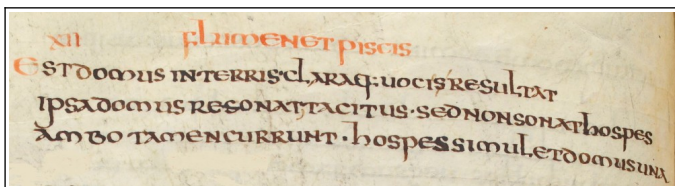 XII FLUMEN ET PISCIS
EST DOMUS IN TERRIS· CLARAQ: UOCIS RESULTAT
IPSA DOMUS RESONAT TACITUS· SED NON SONAT hOSPES
AMBO TAMEN CURRUNT· hOSPES SIMUL ET DOMUS UNA